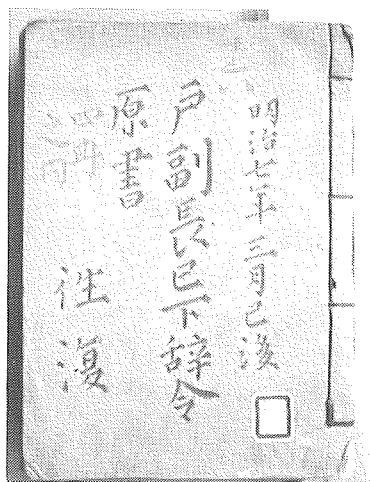 明治七年三月已後
戸副長已下辞令
原書
往復
四冊
之内